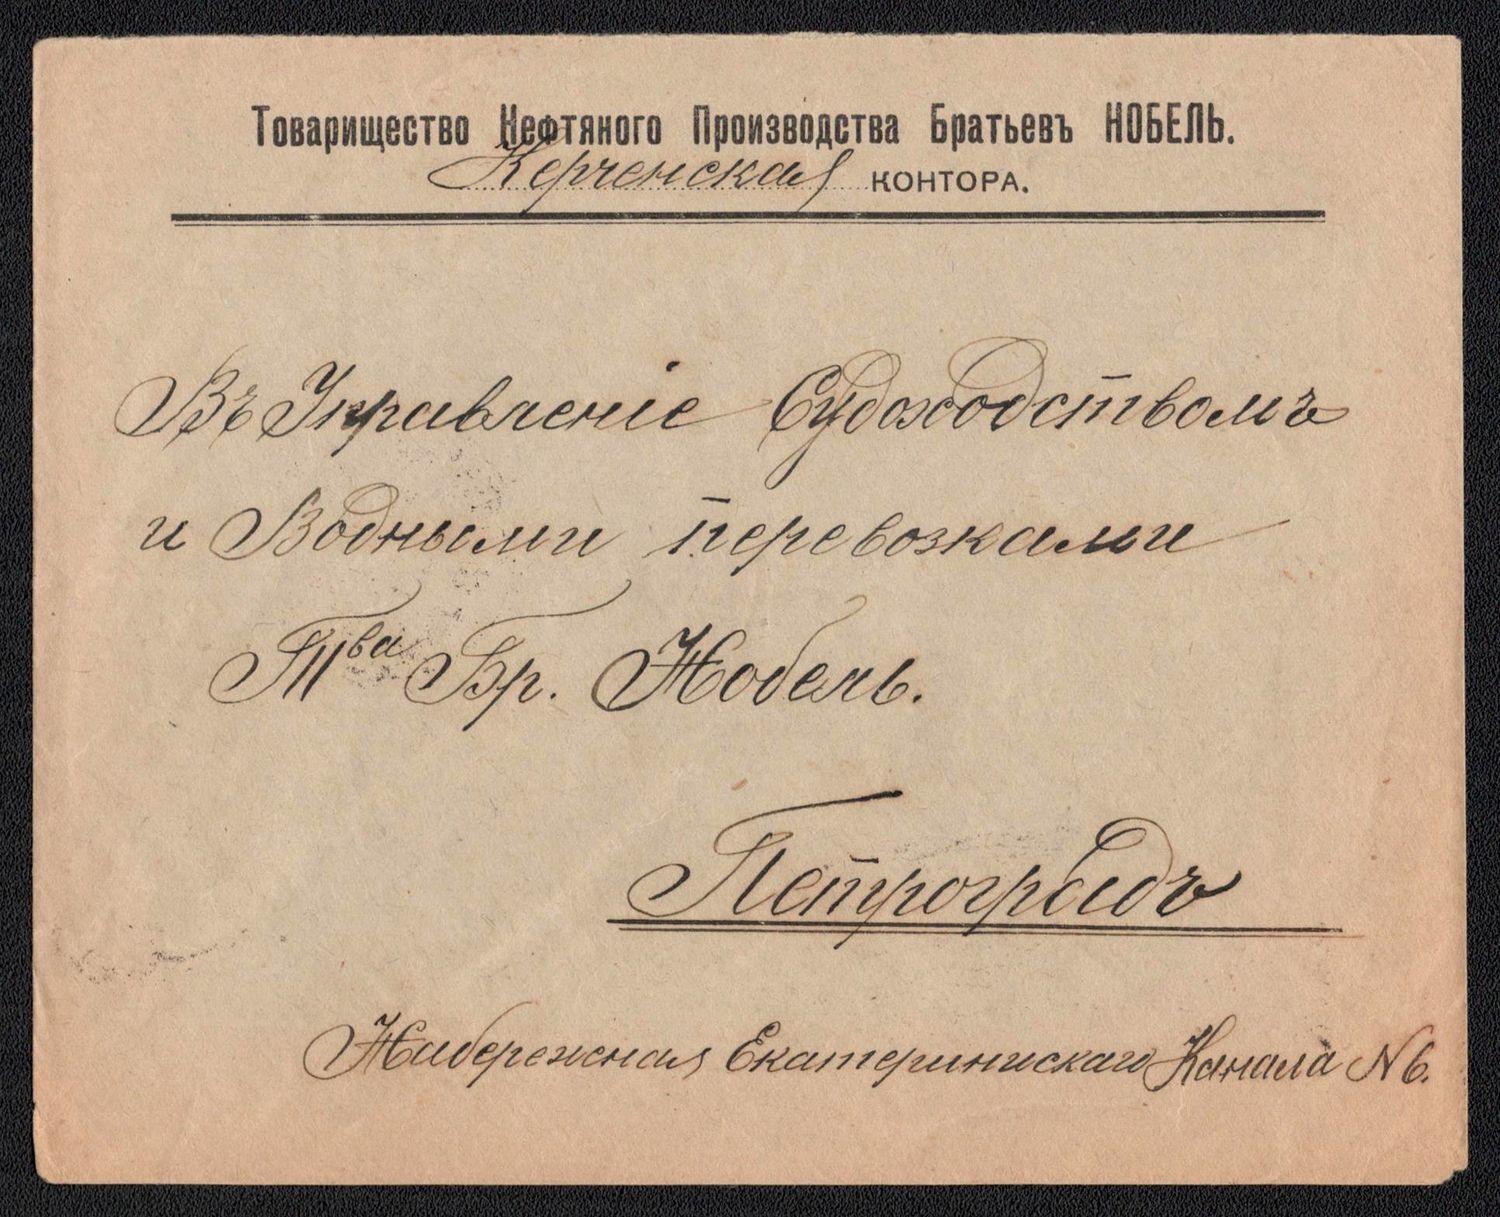 Товарищество Нефтяного Производства Братьевъ НОБЕЛЬ.
Керченская КОНТОРА.
Въ Управленіе Судоходствомъ
и Водными перевозками
Тва Бр. Нобель.
Петроградъ
Набережная Екатерининскаго Канала N 6.